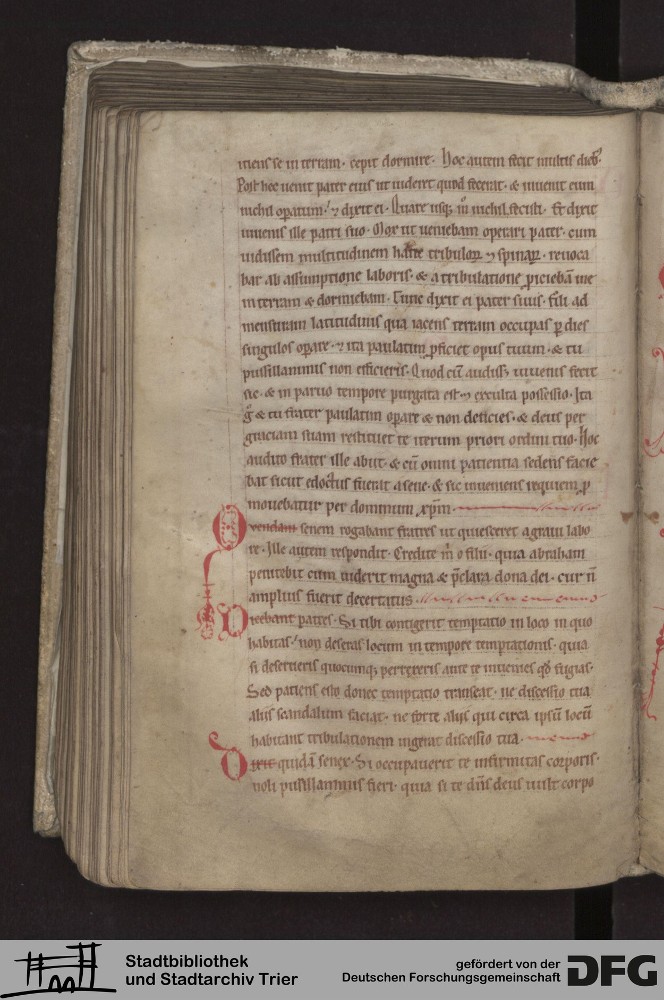 ciens se in terram · cepit dormire · Hoc autem fecit multis dieb᷒
Post hoc uenit pater eius ut uideret quod fecerat · & inuenit eum
nichil opatum · ⁊ dixit ei · Quare usq; m̊ nichil fecisti · Et dixit
iuuenis ille patri suo · Mox ut ueniebam operari pater · cum
uidissem multitudinem hanc tribuloꝝ ⁊ spinaꝝ · reuoca
bar ab assumptione laboris · & a tribulatione piciebā me
in terram & dormiebam · Tunc dixit ei pater suus · fili ad
mensuram latitudinis qua iacens terram occupas p dies
singulos opare · ⁊ ita paulatim pficiet opus tuum · & tu
pusillanimis non efficieris · Quod cū audiss; iuuenis fecit
sic · & in paruo tempore purgata est ⁊ exculta possessio · Ita
g̊ & tu frater paulatim opare & non deficies · & deus per
graciam suam restituet te iterum priori ordini tuo · Hoc
audito frater ille abiit · & cū omni patientia sedens facie
bat sicut edoctus fuerat a sene · & sic inueniens requiem p
mouebatur per dominum xp̄m ·
Quendam senem rogabant fratres ut quiesceret a graui labo
re · Ille autem respondit · Credite m̊ o filii · quia abraham
penitebit cum uiderit magna & p̄clara dona dei · cur n̄
amplius fuerit decertatus
Dicebant patres · Si tibi contigerit temptatio in loco in quo
habitas · non deseras locum in tempore temptationis · quia
si deserueris quocumq; perrexeris ante te inuenies qd̄ fugias ·
Sed patiens esto donec temptatio transeat · ne discessio tua
aliis scandalum faciat · ne forte aliis qui circa ipsū locū
habitant tribulationem ingerat discessio tua ·
Dixit quidā senex · Si occupauerit te infirmitas corporis ·
noli pusillanimis fieri · quia si te dn̄s deus uult corpo
Stadtbibliothek
und Stadtarchiv Trier
gefördert von der
Deutschen Forschungsgemeinschaft
DFG